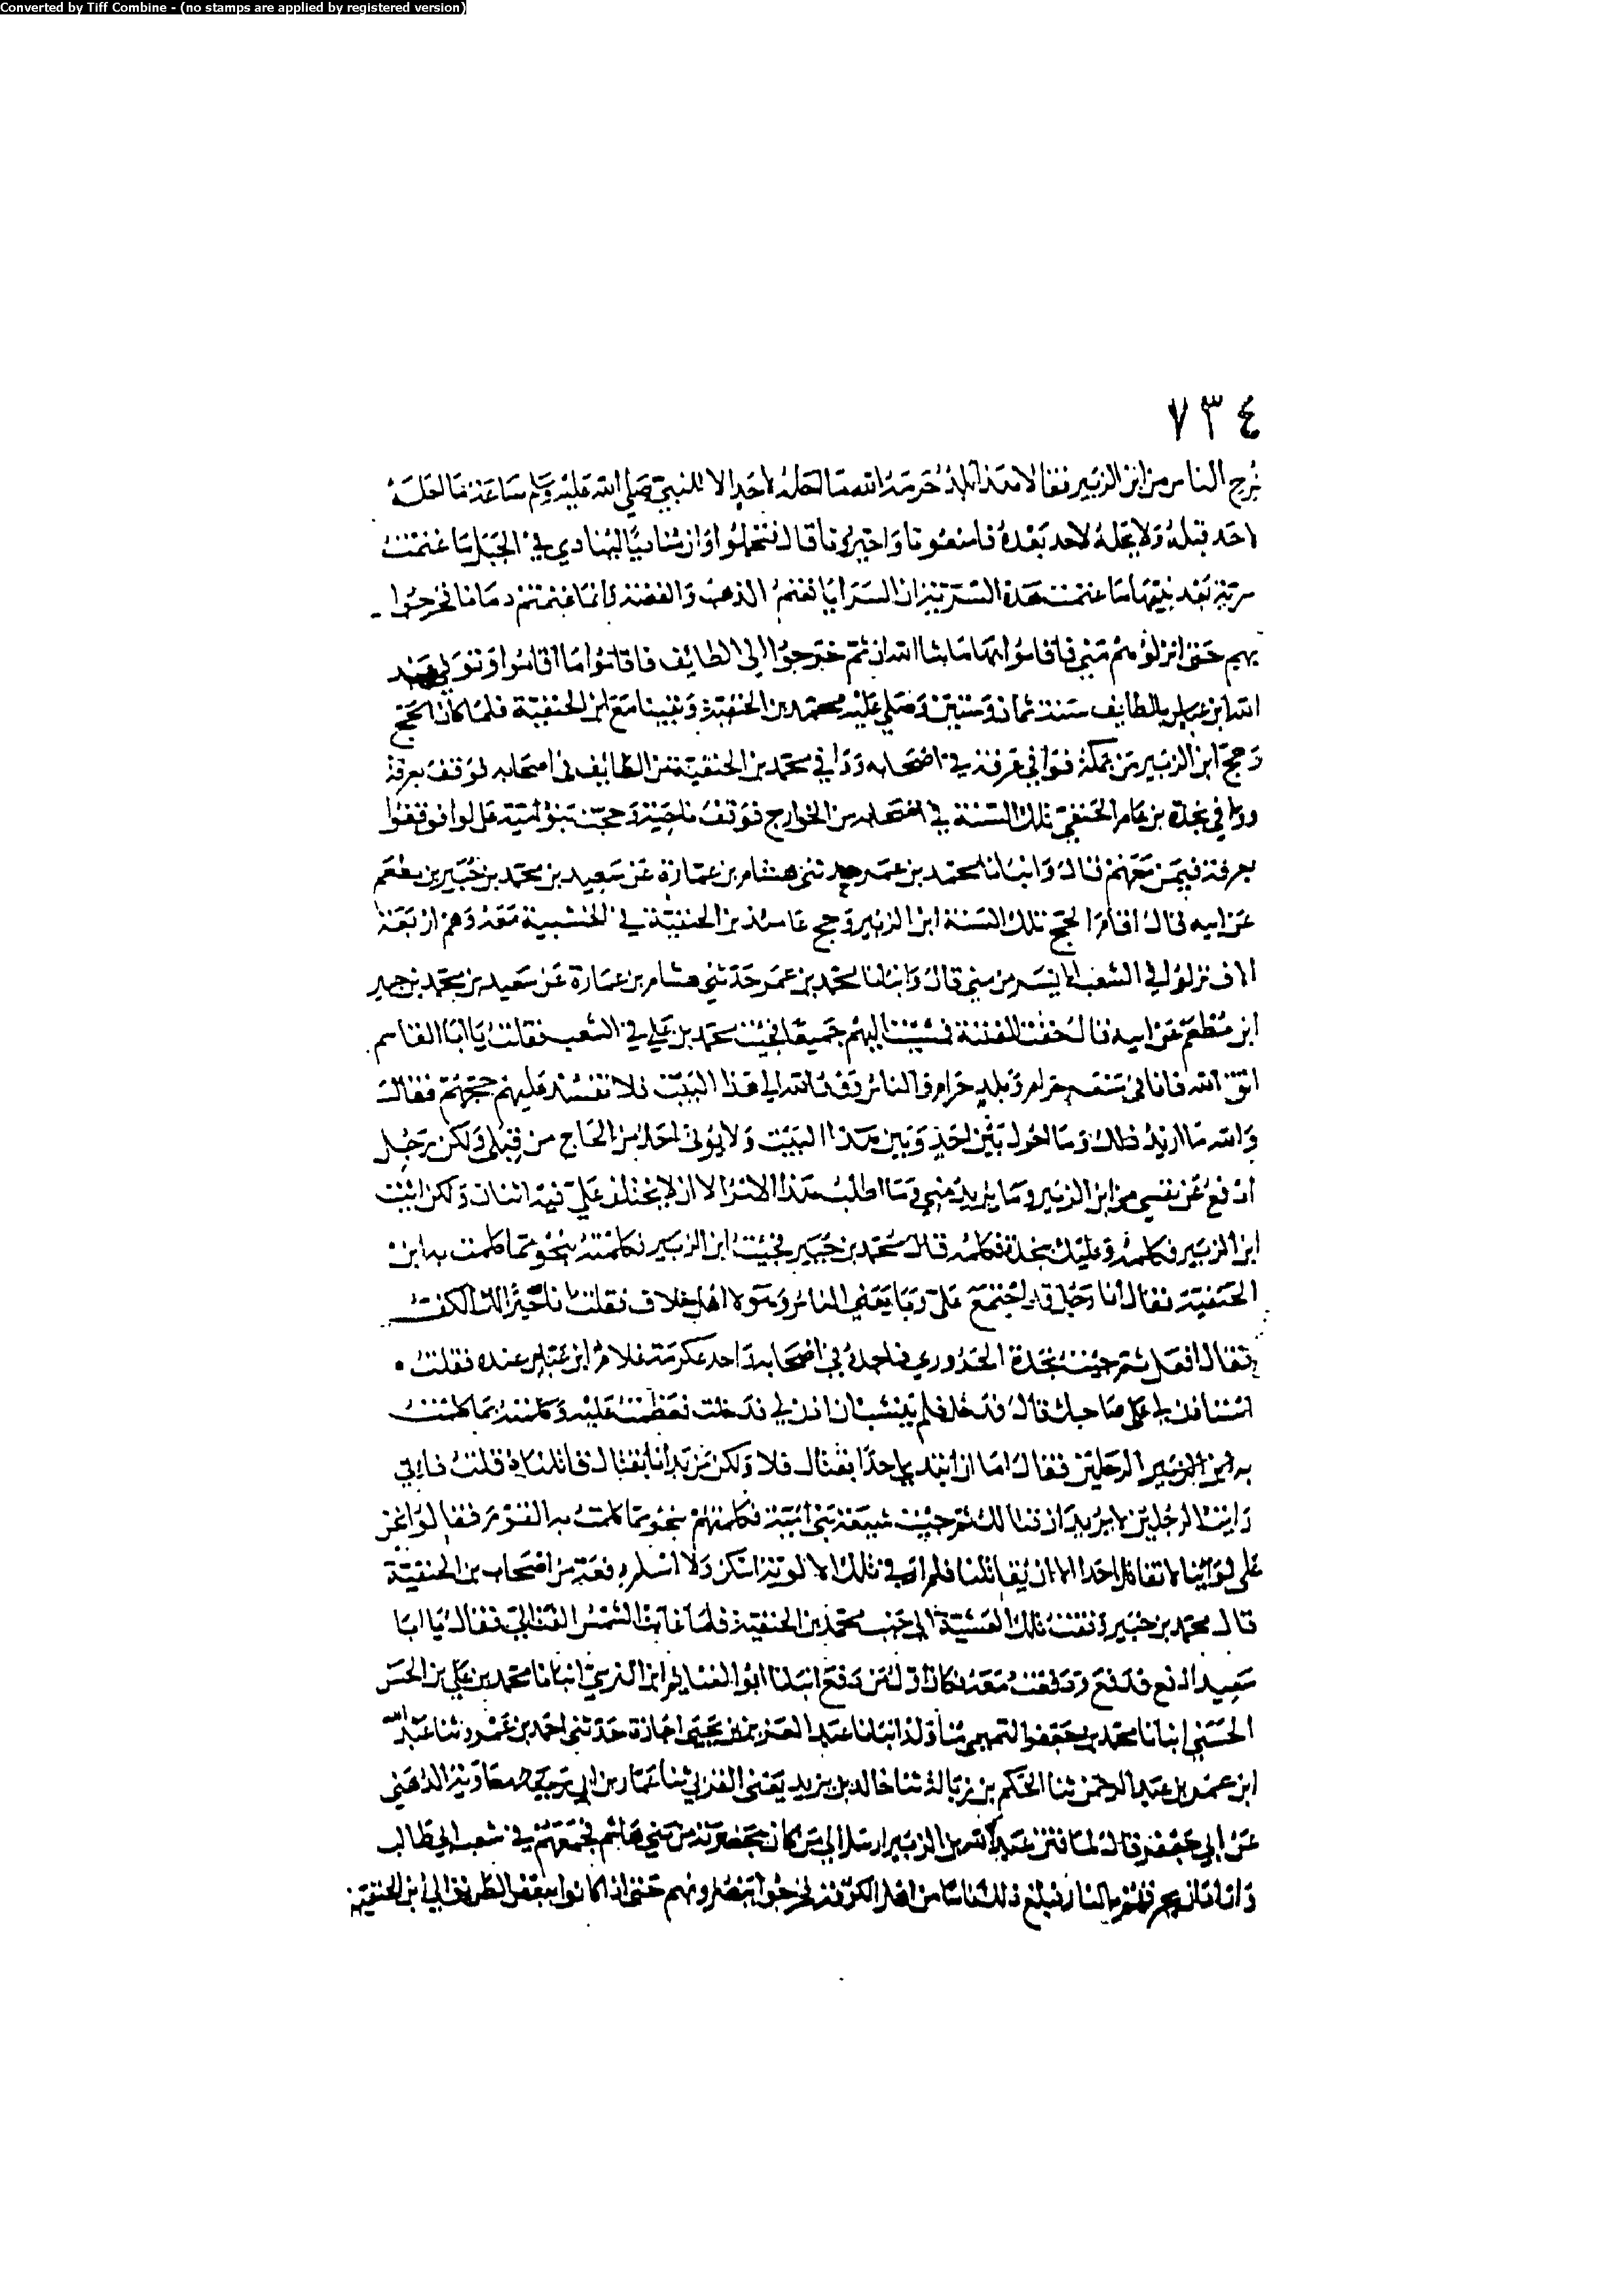 Converted by Tiff Combine - (no stamps are applied by registered version)
٧٣٤
نريح الناس من ابن الزبير فقالا هذا بلد حرمه الله ما احله لاحد الا للنبي صلى الله عليه وسلم ساعة ما احله
لاحد قبله ولا يحله لاحد بعده فامنعونا واجيرونا قال فتحملوا وان مناديا لينادي في الجبل ما غنمت
سرية بعد نبيها ما غنمت هذه السرية ان السرايا تغنم الذهب والفضة وانما غنمتم دماءنا فخرجوا
بهم حتى انزلوهم منى فاقاموا بها ما شا الله ان ثم خرجوا الى الطايف فاقاموا ما اقاموا وتوفي عبد
الله ابن عباس بالطايف سنة ثمان وستين وصلى عليه محمد بن الحنفية وبقينا مع ابن الحنفية فلما كان الحج
وحج ابن الزبير من مكة فوافى عرفة في اصحابه ووافى محمد بن الحنفية من الطايف في اصحابه فوقف بعرفة
ووافى نجدة بن عامر الحنفي تلك السنة في اصحابه من الخوارج فوقف ناحية وحجت بنو امية على لوا فوقفوا
بعرفة فيمن معهم قال وانبانا محمد بن عمر حدثني هشام بن عمارة عن سعيد بن محمد بن جبير بن مطعم
عن ابيه قال اقام الحج تلك السنة ابن الزبير وحج عامئذ بن الحنفية في الخشبية معه وهم اربعة
الاف نزلوا في الشعب الايسر من منى قال وانبانا محمد بن عمر حدثني هشام بن عمارة عن سعيد بن محمد بن جبير
ابن مطعم عن ابيه قال خفت الفتنة فمشيت اليهم جميعا فجيت محمد بن علي في الشعب فقلت يا ابا القاسم
اتق الله فانا في مشعر حرام وبلد حرام والناس وفد الله الى هذا البيت فلا تفسد عليهم حجهم فقال
والله ما اريد ذلك وما احول بين احد وبين هذا البيت ولا يؤتى احد من الحاج من قبلي ولكن رجل
ادفع عن نفسي من ابن الزبير وما يريد مني وما اطلب هذا الامر الا ان لا يختلف علي فيه اثنان ولكن ائت
ابن الزبير فكلمه وعليك بنجدة فكلمه قال محمد بن جبير فجيت ابن الزبير فكلمته بنحو مما كلمت به ابن
الحنفية فقال انا رجل قد اجتمع علي وبايعني الناس وهولا اهل خلاف فقلت ان خيرا لك الكف
فقال افعل ثم جيت نجدة الحروري فاجده في اصحابه واجد عكرمة غلام ابن عباس عنده فقلت
استاذن لي على صاحبك قال فدخل فلم ينشب ان اذن لي فدخلت فعظمت عليه وكلمته بما كلمت
به الرجلين فقال اما ان ابتدي احدا بقتال فلا ولكن من بدانا بقتال قاتلناه قلت فاني
رايت الرجلين لا يريدان قتالك ثم جيت شيعة بني امية فكلمتهم بنحو مما كلمت به القوم فقالوا نحن
على لوائنا لا نقاتل احدا الا ان يقاتلنا فلم ار في تلك الالوية اسكن ولا اسلم دفعة من اصحاب بن الحنفية
قال محمد بن جبير وقفت تلك العشية الى جنب محمد بن الحنفية فلما غابت الشمس التفت الي فقال يا ابا
سعيد ادفع فدفع ودفعت معه فكان اول من دفع انبانا ابو الغنايم ابن النرسي انبانا محمد بن علي بن الحسن
الحسني انبانا محمد بن جعفر التميمي مناولة انبانا عبد العزيز بن يحيى اجازة حدثني احمد بن عمرو ثنا عبد الله
ابن عمر بن عبد الرحمن ثنا الحكم بن ثنا خالد بن يزيد يعني ثنا عمار بن ابي معاوية الدهني
عن ابي جعفر قال لما فتن عبد الله بن الزبير ارسل الى من كان بحضرته من بني هاشم فجمعهم في شعب ابي طالب
واراد ان يحرقهم بالنار فبلغ ذلك ناسا من اهل الكوفة فخرجوا ينصرونهم حتى اذا كانوا ببعض الطريق الى ابن الحنفية